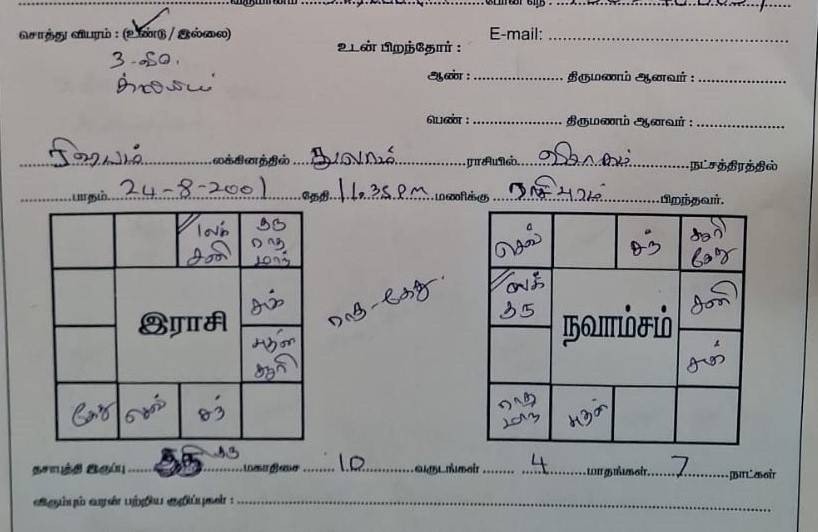 சொத்து விபரம் : (உண்டு / இல்லை)
E-mail:
உடன் பிறந்தோர் :
ஆண் : திருமணம் ஆனவர் :
பெண் : திருமணம் ஆனவர் :
ரிஷபம் லக்கினத்தில் துலாம் ராசியில் விசாகம் நட்சத்திரத்தில்
பாதம் 24-8-2001 தேதி 11.35 PM மணிக்கு ராசிபுரம் பிறந்தவர்.
லக் சனி
குரு ராகு மாந்
சுக்
புதன் சூரி
கேது செவ் சந்
இராசி
ராகு - கேது.
செவ் சந் சூரி கேது
லக் குரு
சனி
சுக்
ராகு மாந் புதன்
நவாம்சம்
தசாபுத்தி இருப்பு குரு மகாதிசை 10 வருடங்கள் 4 மாதங்கள் 7 நாட்கள்
விரும்பும் வரன் பற்றிய குறிப்புகள் :